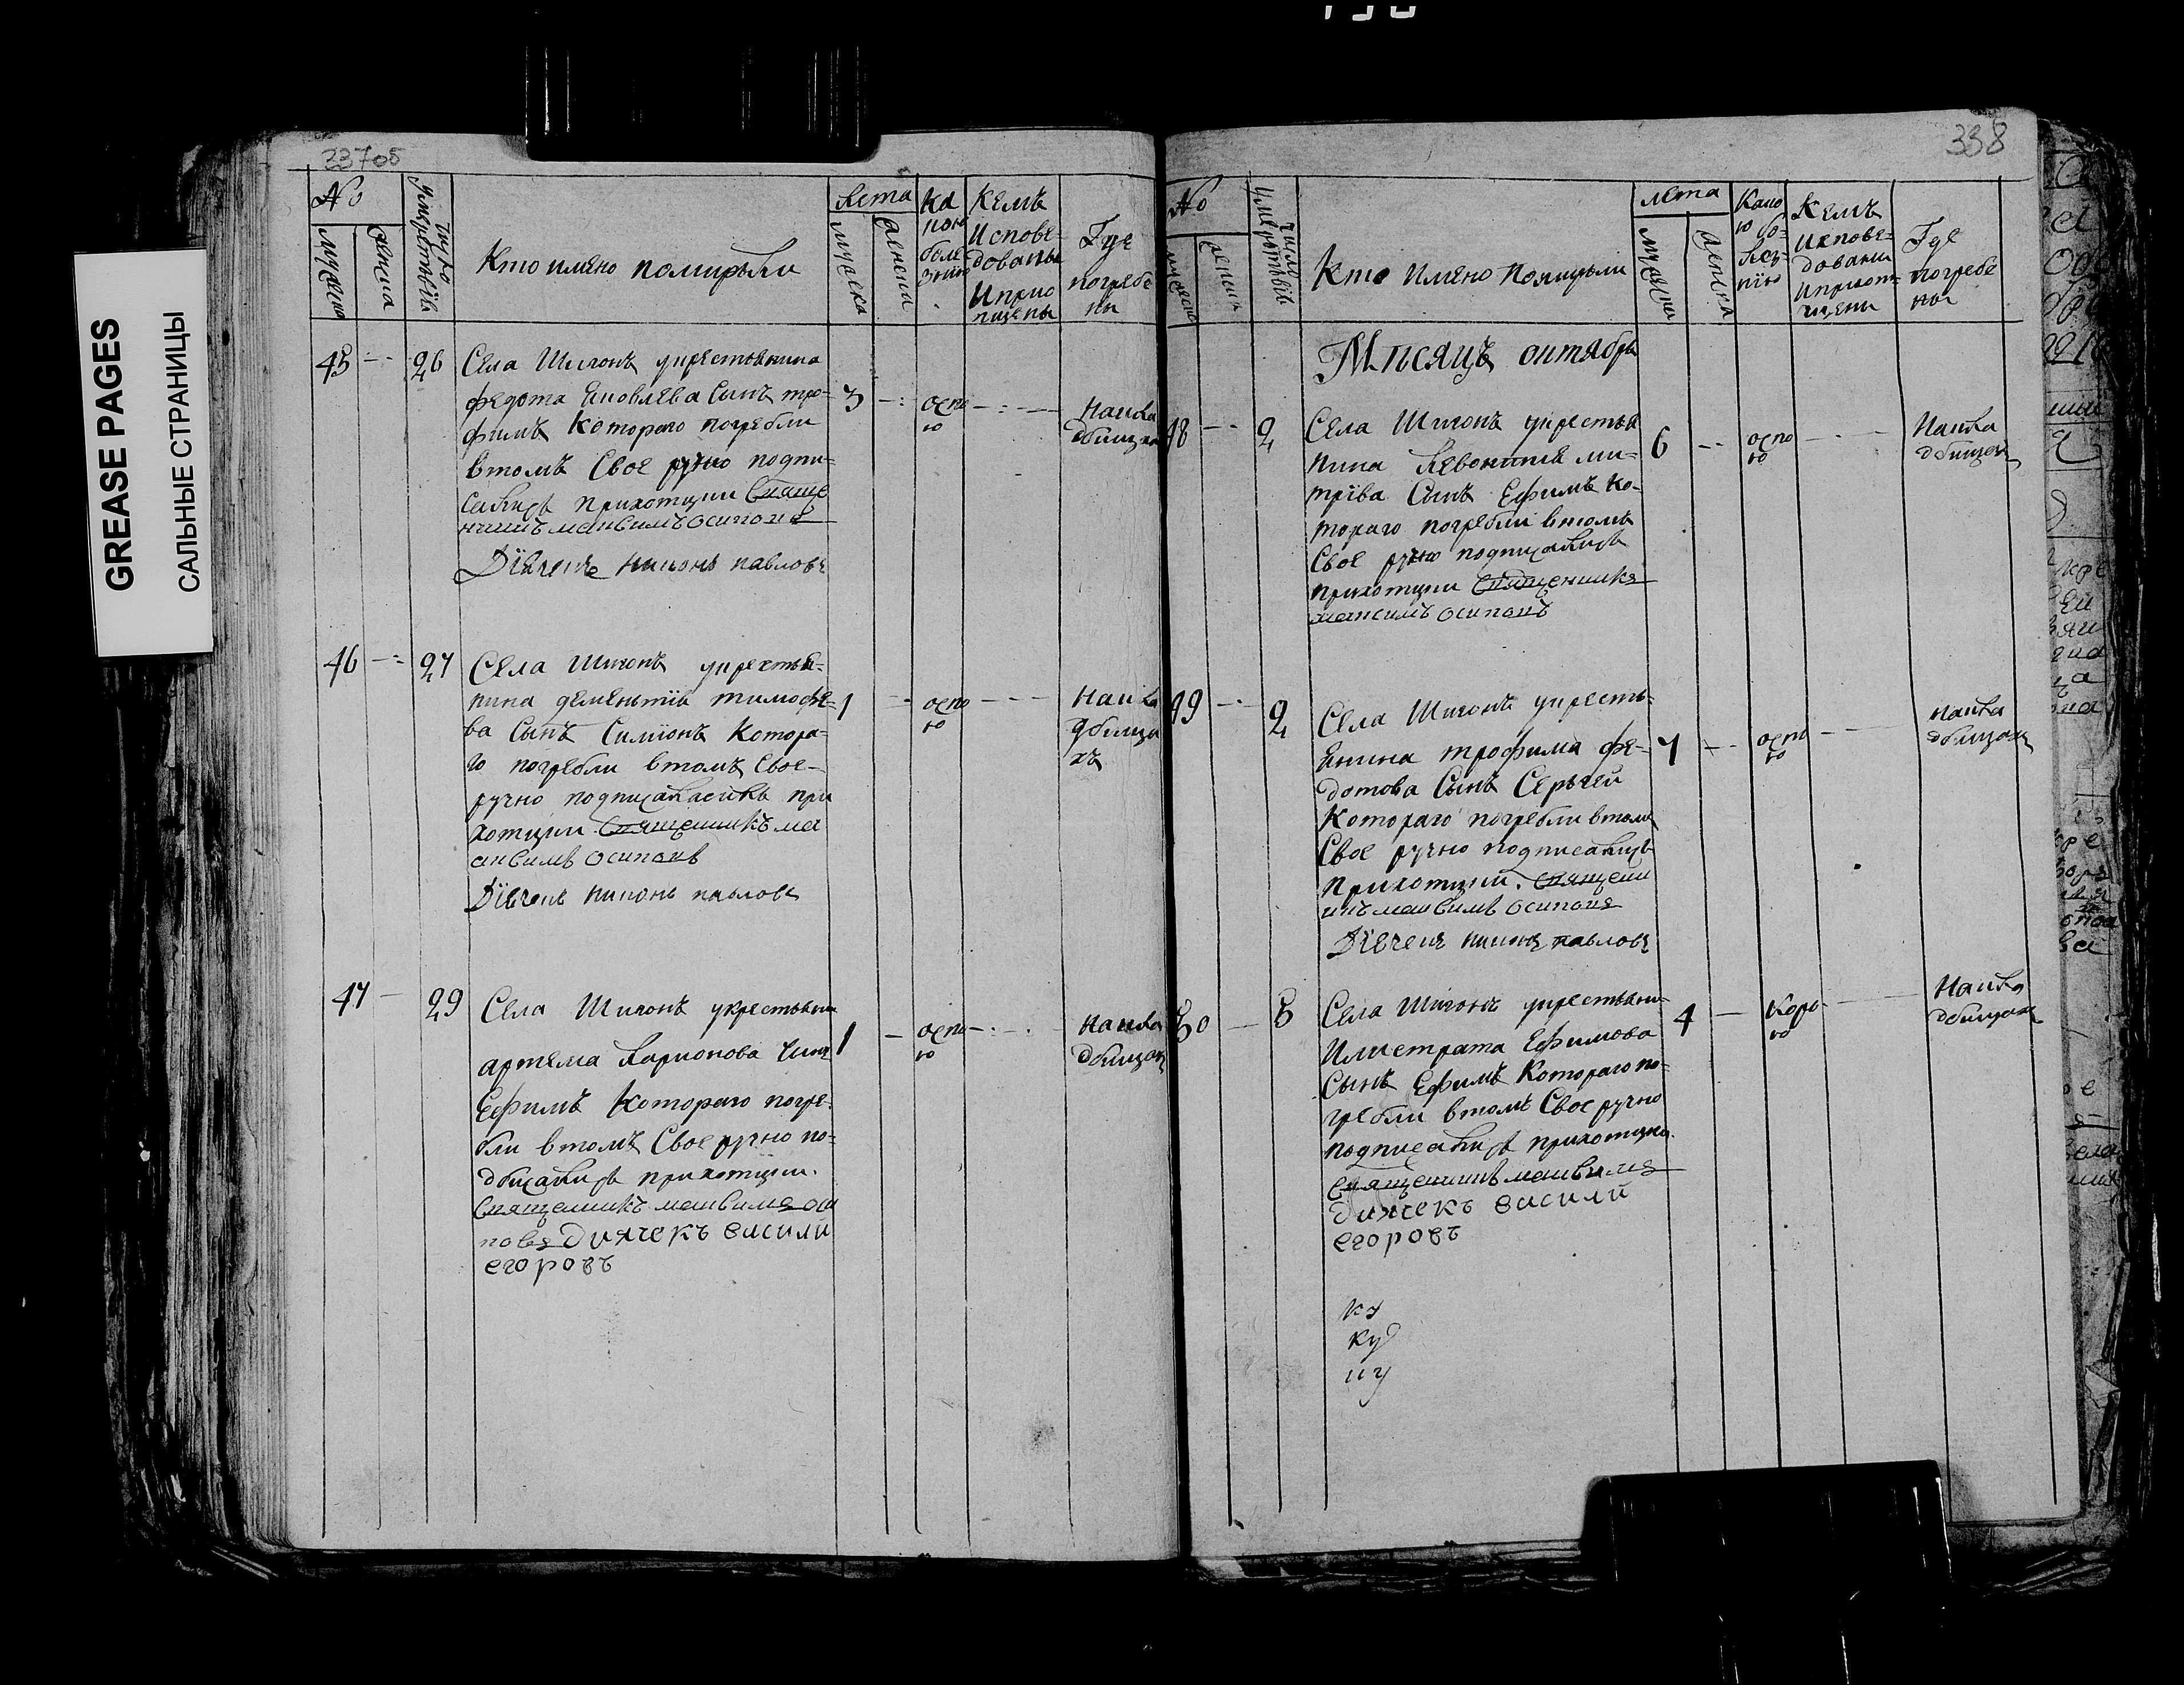 GREASE PAGES
САЛЬНЫЕ СТРАНИЦЫ
337об
No
мужеска
женска
число умертвiв
Кто имяно помирьли
Лета
мужеска
женска
Ка
кою
боле
знию
Кемъ
Испове-
дованы
Иприо
пщены
Где
погребе
ны
45
26
Села Шигонъ укрестьянина
федота Яковлева Сынъ тро-
фимъ Котораго погребли
втомъ Свое ручно подпи-
салися прихотции Свяще
нникъ максимъ осиповъ
Дiячекъ никонъ павловъ
3
оспо
ю
Накла
дбищах
46
27
Села Шигонъ укрестья-
нина дементiя тимофе-
ва Сынъ Симионъ Котора-
го погребли втомъ Свое-
ручно подписалисика при
хотции Священникъ ма
ксимъ осиповъ
Дiячекъ никонъ павловъ
1
оспо
ю
Накла
дбища
хъ
47
29
Села Шигонъ укрестьяни
артема Ларионова Сынъ
Ефимъ Котораго погре-
бли втомъ Свое ручно по-
дписалися прихотции.
Священникъ максимъ оси
повъ Диячекъ васили
егоровъ
1
оспо
ю
Накла
дбищах
338
No
мужеска
женска
число умертвiв
Кто Имено Помирьли
лета
мужеска
женска
Како
ю бо-
лез-
нiю
Кемъ
Испове-
дованы
Иприот-
щены
Где
погребе
ны
Мѣсяцъ октябрь
48
2
Села Шигонъ укрестья
нина Левонтия ми-
трiва Сынъ Ефимъ Ко-
тораго погребли втомъ
Свое ручно подписалися
прихотции Священникъ
максимъ осиповъ
6
оспо
ю
Накла
дбищех
49
2
Села Шигонъ укресть-
янина трофима фе-
дотова Сынъ Сергей
Котораго погребли втомъ
Свое ручно подписалися
Прихотции. Священн
икъ максимъ осиповъ
Дiячекъ никонъ павловъ
7
оспо
ю
накла
дбищах
50
8
Села Шигонъ укрестьяни-
Илистрата Ефимова
Сынъ Ефимъ Котораго по-
гребли втомъ Свое ручно
подписалися прихотции.
Священникъ максимъ
диячекъ васили
егоровъ
4
Корь
ю
Накла
дбищах
ку